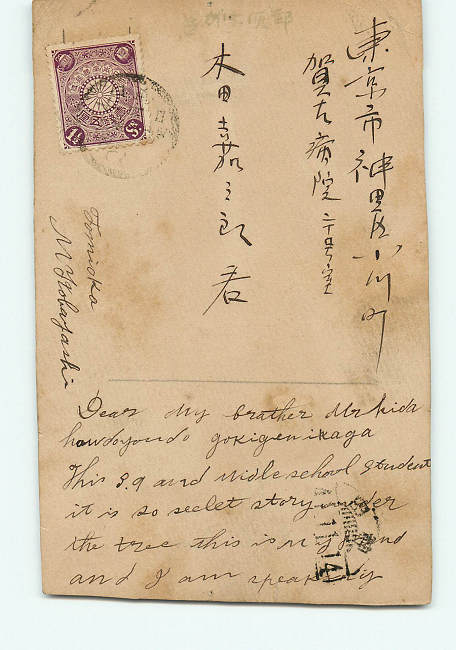 東京市神田区小川町
賀古病院二十号室
木田吉茄三郎君
1½ Sn
Tomioka
M Kobayashi
Dear My brather Mr kida
howdoyoudo gokigenikaga
This S.q and Midle school student
it is so seelet story under
the tree this is my
and I am speakig
14